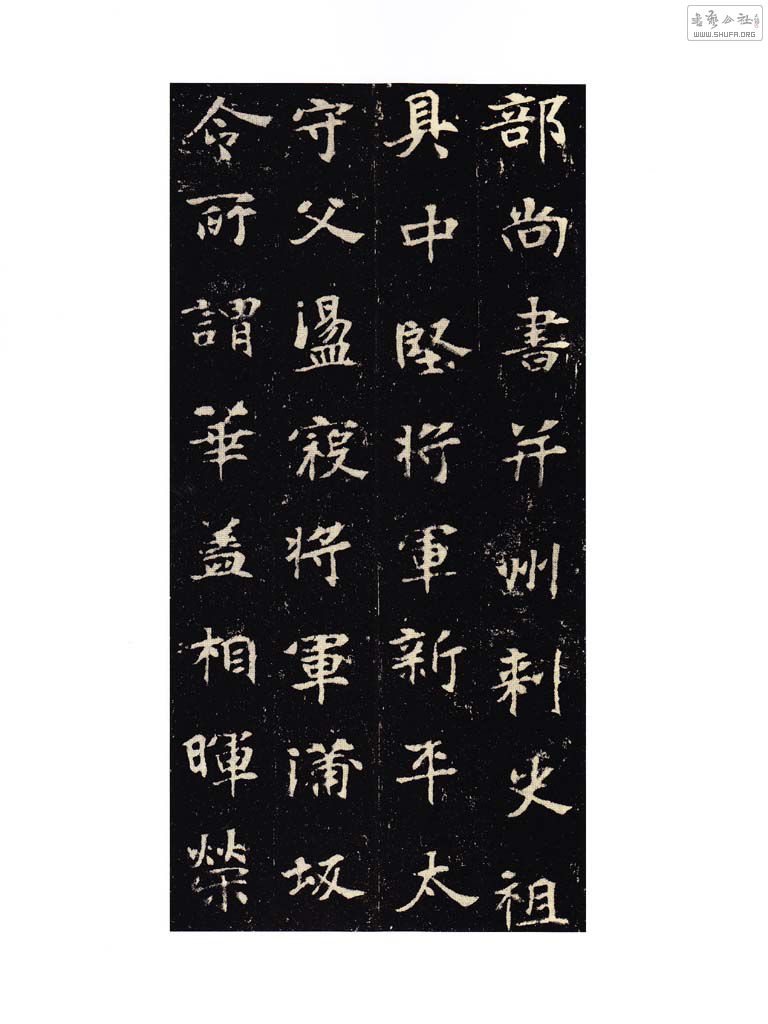 部尚書并州刺史祖
具中堅將軍新平太
守父盪寇將軍蒲坂
令所謂華蓋相暉榮
書藝公社
WWW.SHUFA.ORG